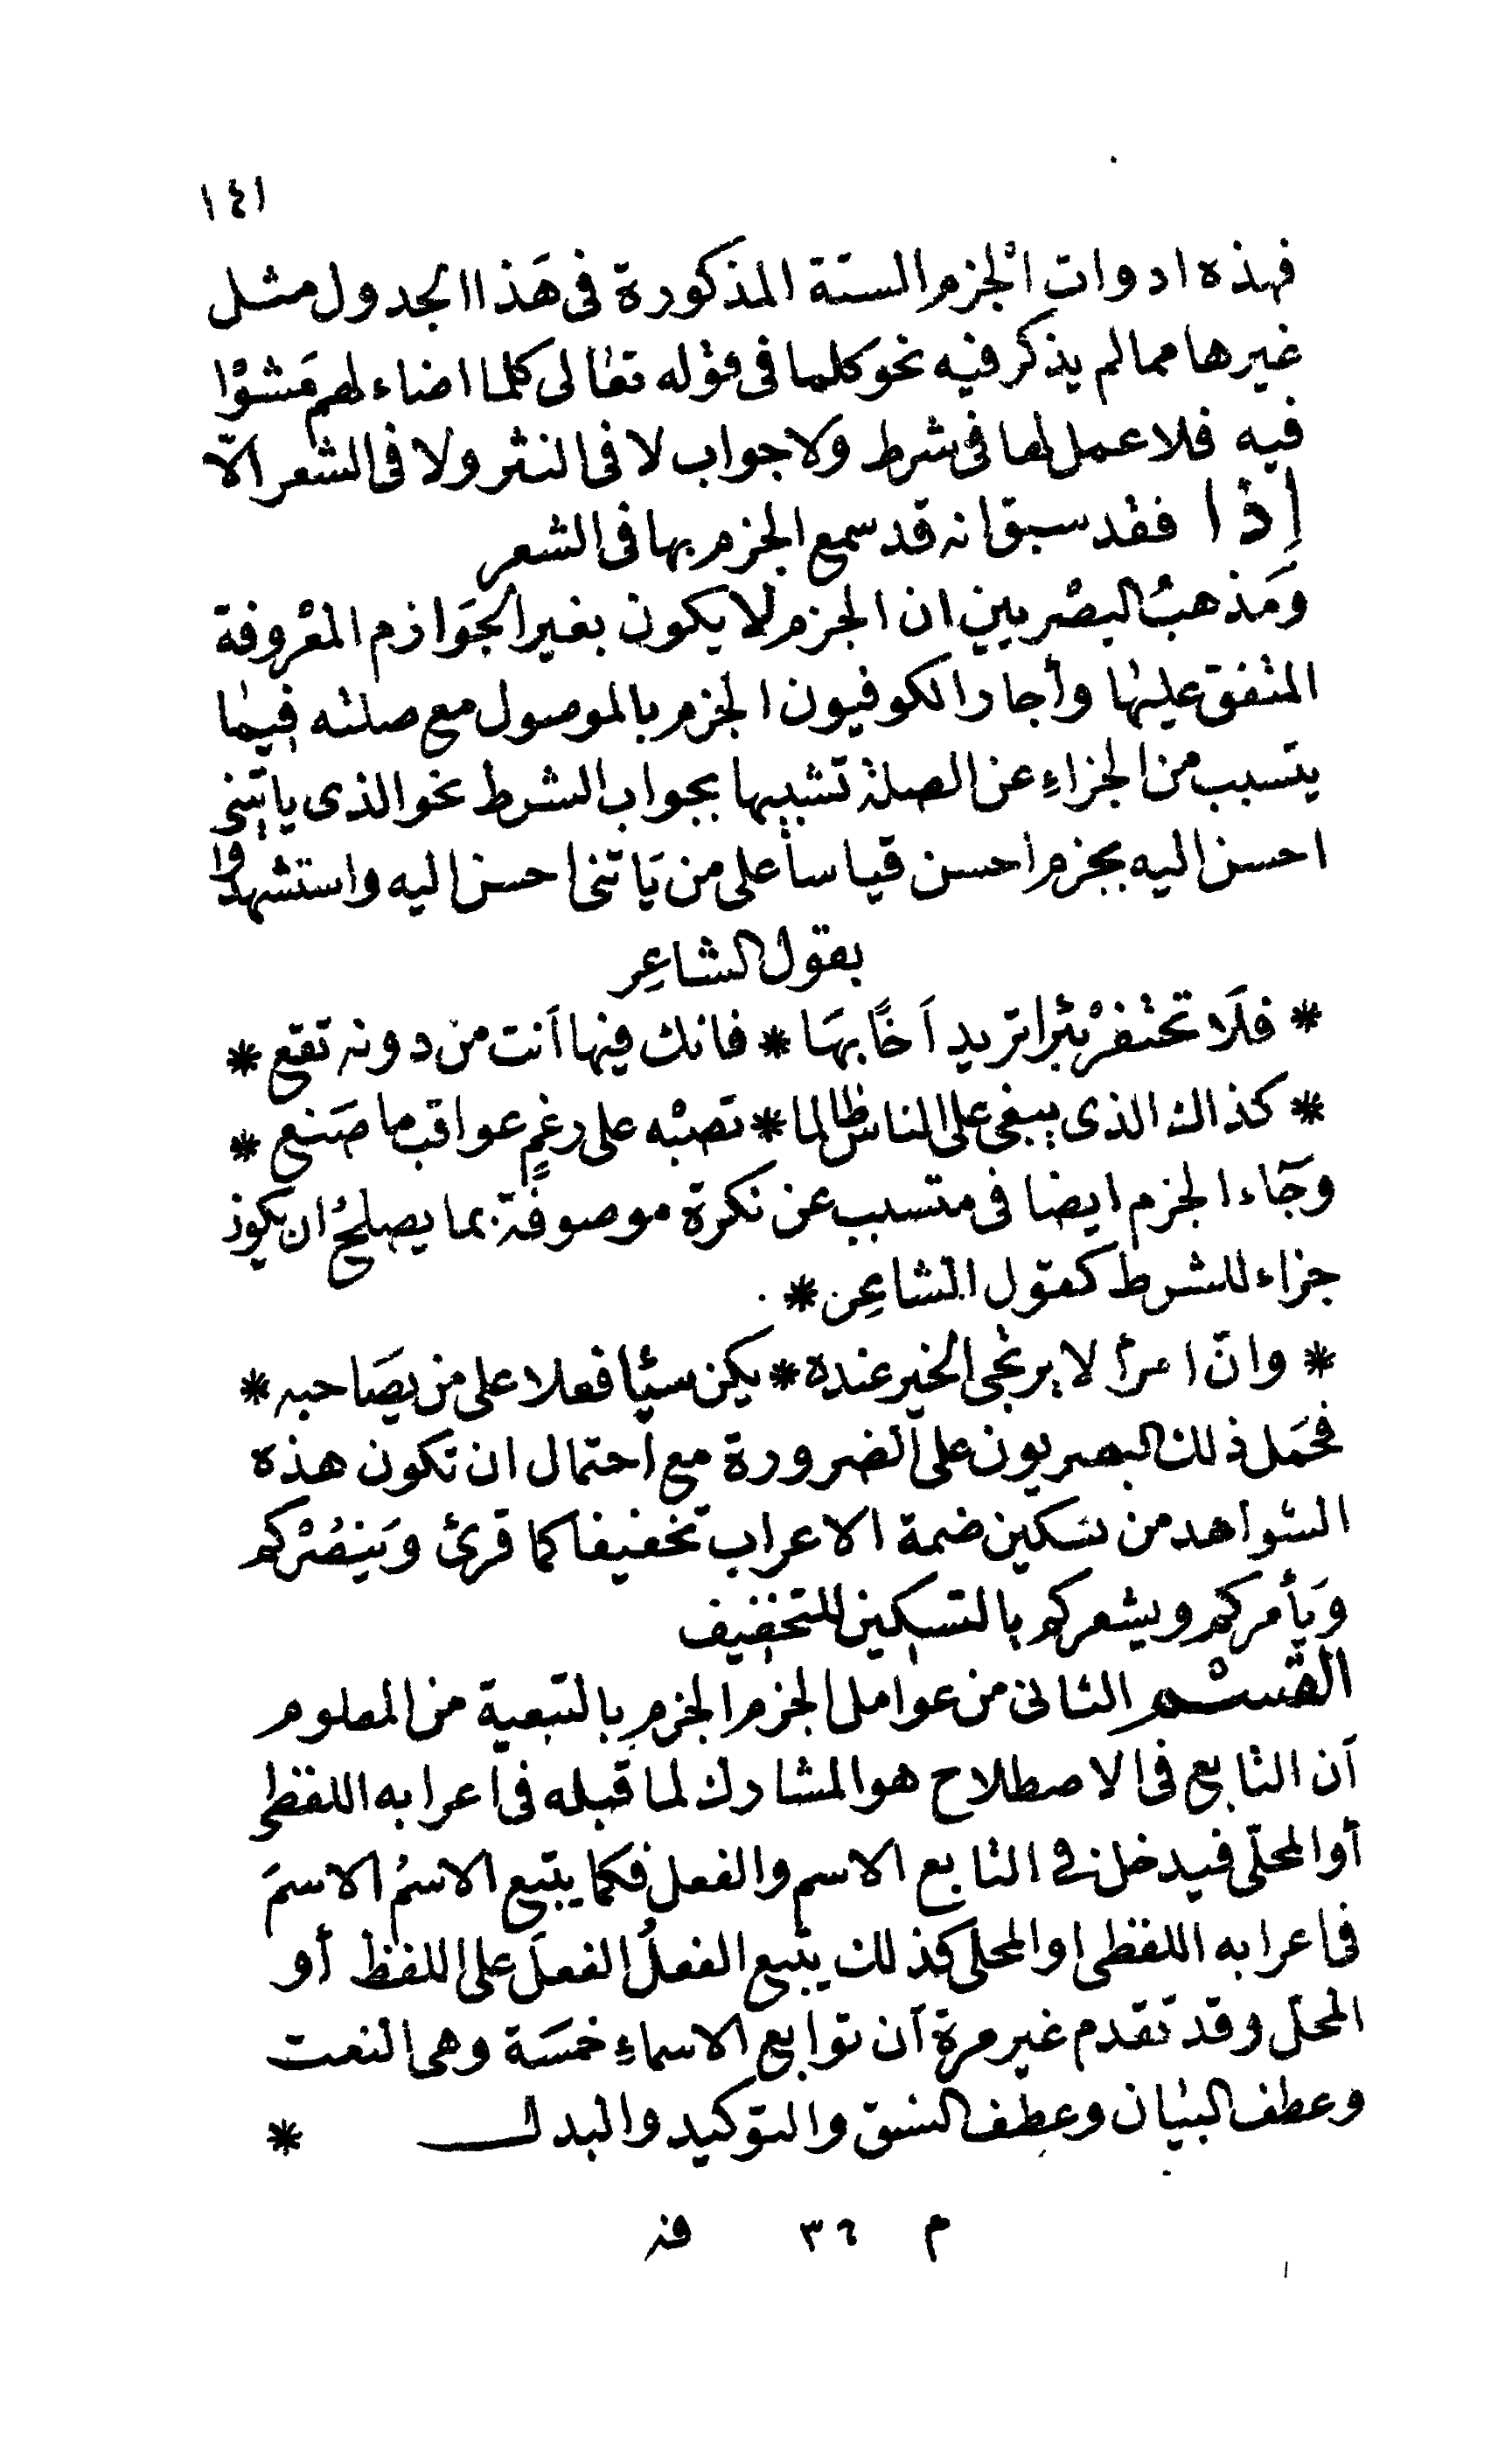 ١٤١
فهذه ادوات الْجزم الستة المذكورة فى هَذا الجدول مثل
غيرها مما لم يذكر فيه نحو كلما فى قوْله تعالى كلما اضاء لهم مَشوْا
فيه فلا عمل لها فى شرط ولا جواب لا فى النثر ولا فى الشعر الّا
إِذا فقد سبق انه قد سمع الجزم بها فى الشعر
ومَذهبُ البصْريين ان الجزم لا يكون بغير الجَوازم المعْروفة
المتفق عليها وأجاز الكوفيون الجزم بالموصول مع صلته فيما
يتسبب من الجزاءِ عن الصلة تشبيها بجواب الشرط نحو الذى ياتينى
احسن اليه بجزم احسن قياسا على من يَاتنى احسن اليه واستشهدوا
بقول الشاعِر
* فلَا تحتفرْ بئرا تريد اَخًا بهَا * فانك فيها اَنت من دونه تقع *
* كذاك الذى يبغى على الناس ظالما * تصبْه على رغمٍ عواقب ما صَنع *
وجَاء الجزم ايضا فى متسبب عن نكرة موصوفة بما يصلحُ ان يكون
جزاء للشرط كقول الشاعِر *
* وانّ امرأ لا يرتجى الخير عنده * يكن سيئا فعلا على من يصَاحبه *
فحمَل ذلك البصريون على الضرورة مع احتمال ان تكون هذه
الشواهد من تسكين ضمة الاعراب تخفيفا كما قرئ ويَنصُرْكم
ويَأمركم ويشعركم بالتسكين للتخفيف
القسْم الثانى من عوامل الجزم الجزم بالتبعية من المعلوم
اَن التابع فى الاصطلاح هو المشارك لما قبله فى اعرابه اللفظى
أو المحلّى فيدخل فى التابع الاسم والفعل فكما يتبع الاسمُ الاسمَ
فى اعرابه اللفظى او المحلى كذلك يتبع الفعلُ الفعلَ على اللفظ أو
المحل وقد تقدم غير مرة اَن توابع الاسماءِ خمسَة وهى النعت
وعطف البيان وعطف النسق والتوكيد والبدل *
م ٣٦ فنـ